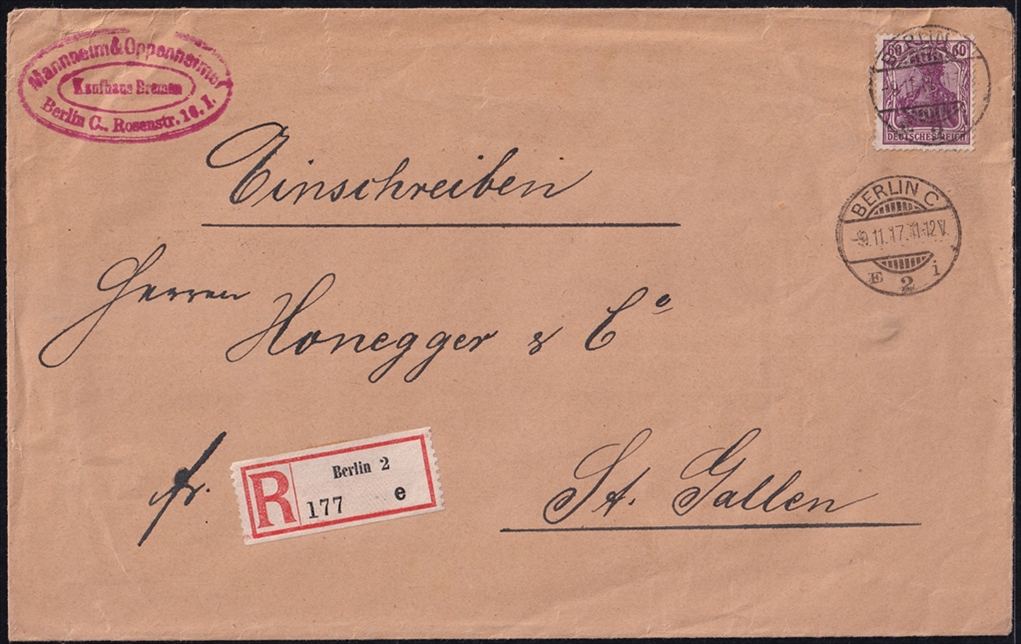 Mannheim & Oppenheimer
Kaufhaus Bremen
Berlin C., Rosenstr. 16. I.
60 60
DEUTSCHES REICH
BERLIN
2
Einschreiben
BERLIN C
-9.11.17.11-12V.
E 2 i
Herren
Honegger & Cº
fr.
R
Berlin 2
177 e
St. Gallen